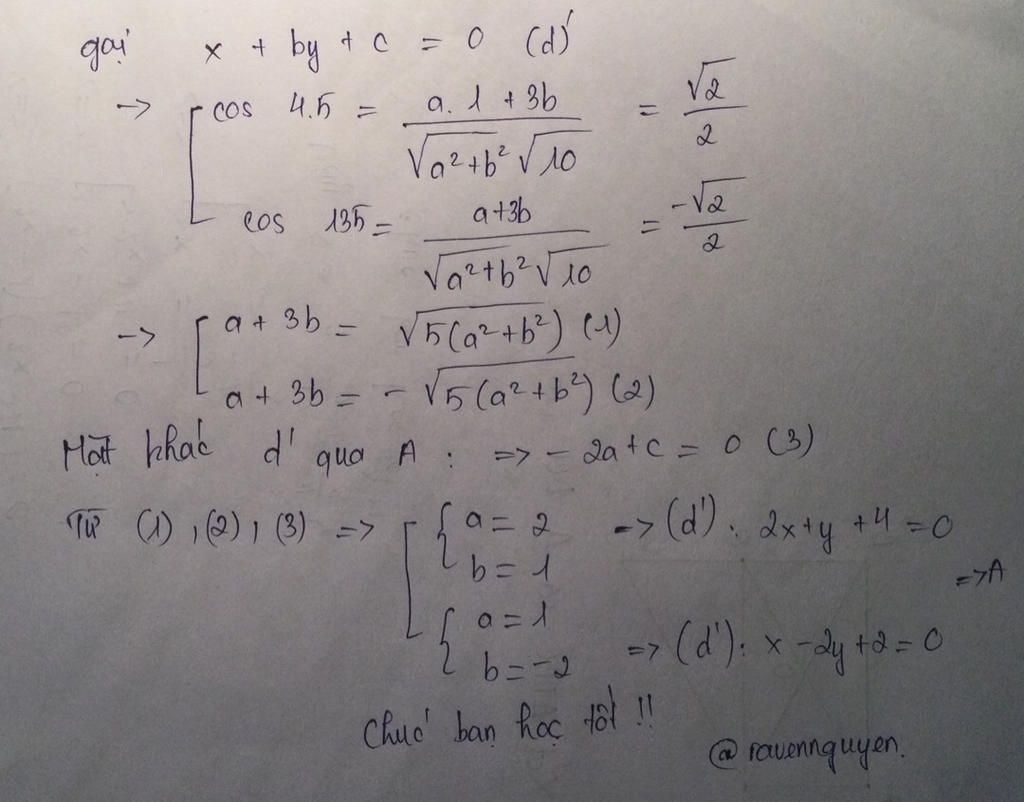 gọi x + by + c = 0 (d')
-> [ cos 45 = a.1 + 3b / √a²+b² √10 = √2/2
cos 135 = a+3b / √a²+b² √10 = -√2/2
-> [ a + 3b = √5(a²+b²) (1)
a + 3b = - √5(a²+b²) (2)
Mặt khác d' qua A : => - 2a+c = 0 (3)
Từ (1), (2), (3) => [ { a = 2 -> (d'): 2x+y+4=0
b = 1
=> A
{ a = 1
b = -2 => (d'): x -2y+2=0
Chúc bạn học tốt !!
@ravennguyen.